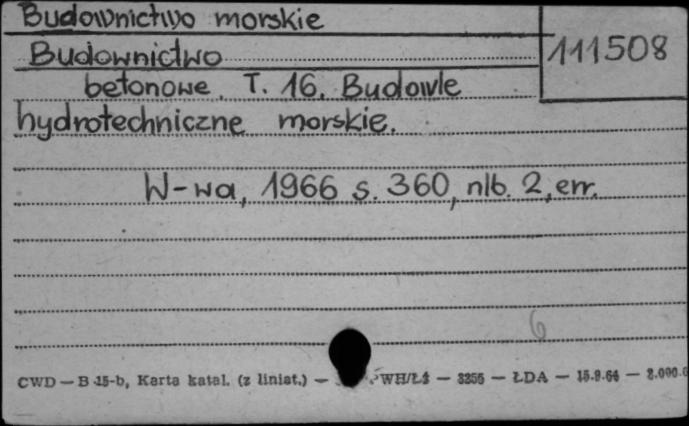 Budownictwo morskie
111508
Budownictwo
betonowe. T. 16. Budowle
hydrotechniczne morskie.
W-wa, 1966 s. 360, nlb. 2, err.
6
CWD — B 15-b, Karta katal. (z liniat.) — PWH/Łź — 3255 — ŁDA — 15.9.64 — 2.000.0